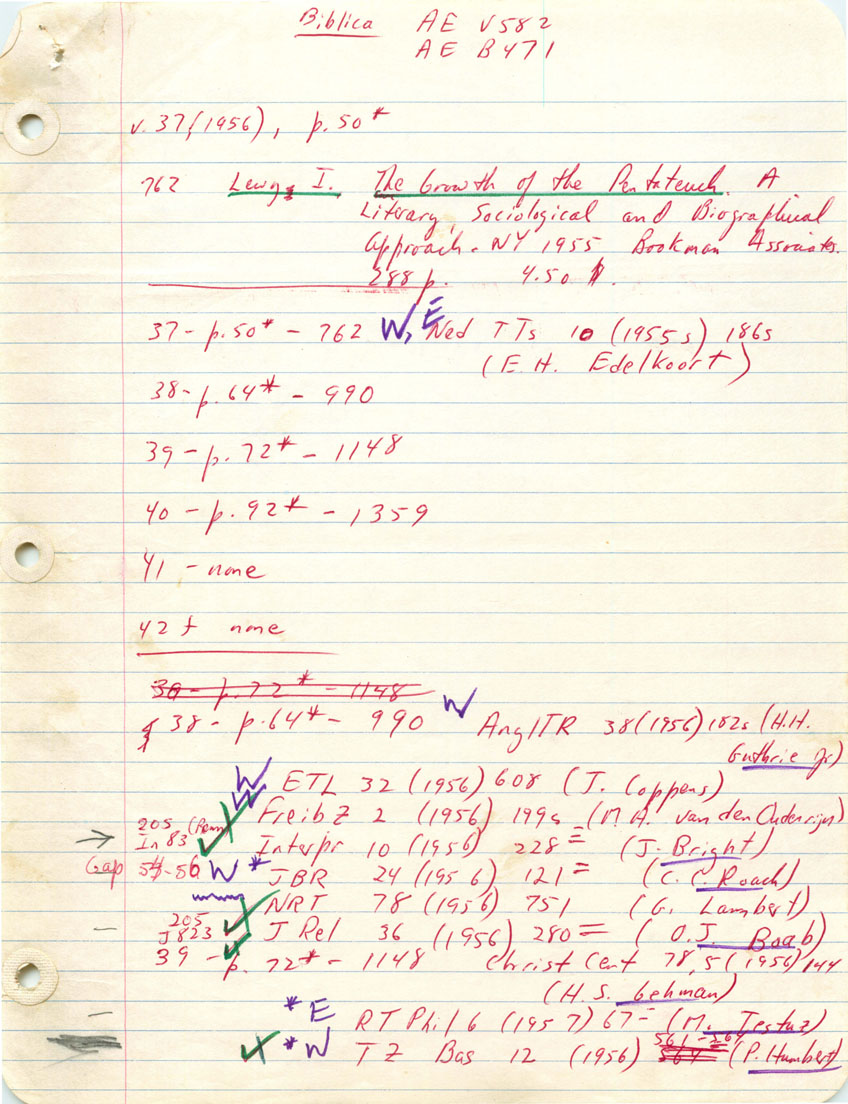 Biblica AE V582
AE B471
v. 37, (1956), p. 50*
762 Lewy, I. The Growth of the Pentateuch. A
Literary, Sociological and Biographical
Approach. NY 1955 Bookman Associates.
288 p. 4.50 $.
37 - p. 50* - 762 W, E Ned TTs 10 (1955s) 186s
(E. H. Edelkoort)
38 - p. 64* - 990
39 - p. 72* - 1148
40 - p. 92* - 1359
41 - none
42 f none
39 - p. 72* - 1148
38 - p. 64* - 990 W AnglTR 38 (1956) 182s (H.H.
Guthrie Jr)
W ETL 32 (1956) 608 (J. Coppens)
W Freib Z 2 (1956) 199s (M. A. van den Oudenrijn)
205 In 83 (Penn) Interpr. 10 (1956) 228 = (J. Bright)
Gap 54-56 W * JBR 24 (1956) 121 = (C. C. Roach)
NRT 78 (1956) 751 (G. Lambert)
205 J823 J Rel 36 (1956) 280 = (O. J. Baab)
39 - p. 72* - 1148 Christ Cent 78,5 (1956) 144
(H. S. Gehman)
* E RT Phil 6 (1957) 67 = (M. Testuz)
* W TZ Bas 12 (1956) 561-564 (P. Humbert)